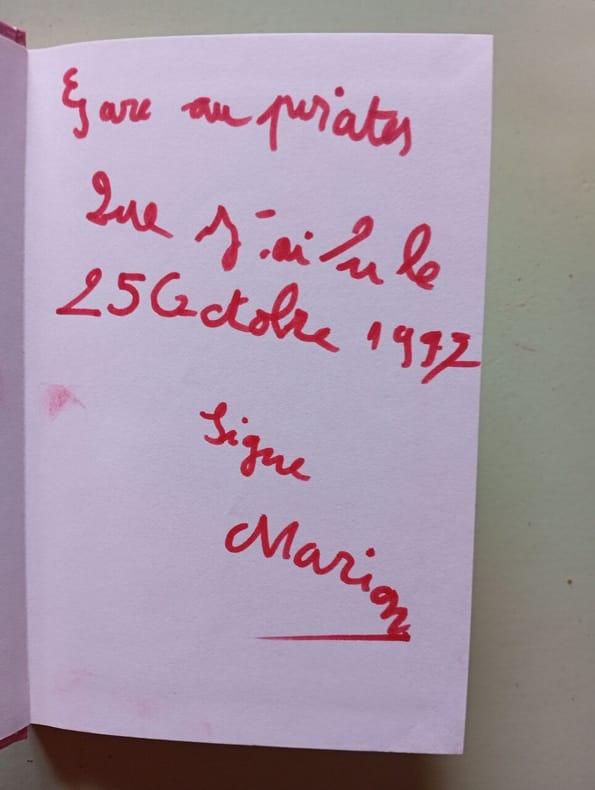 Gare au pirates
Que j'ai lu le
25 Octobre 1992
Signe
Marion